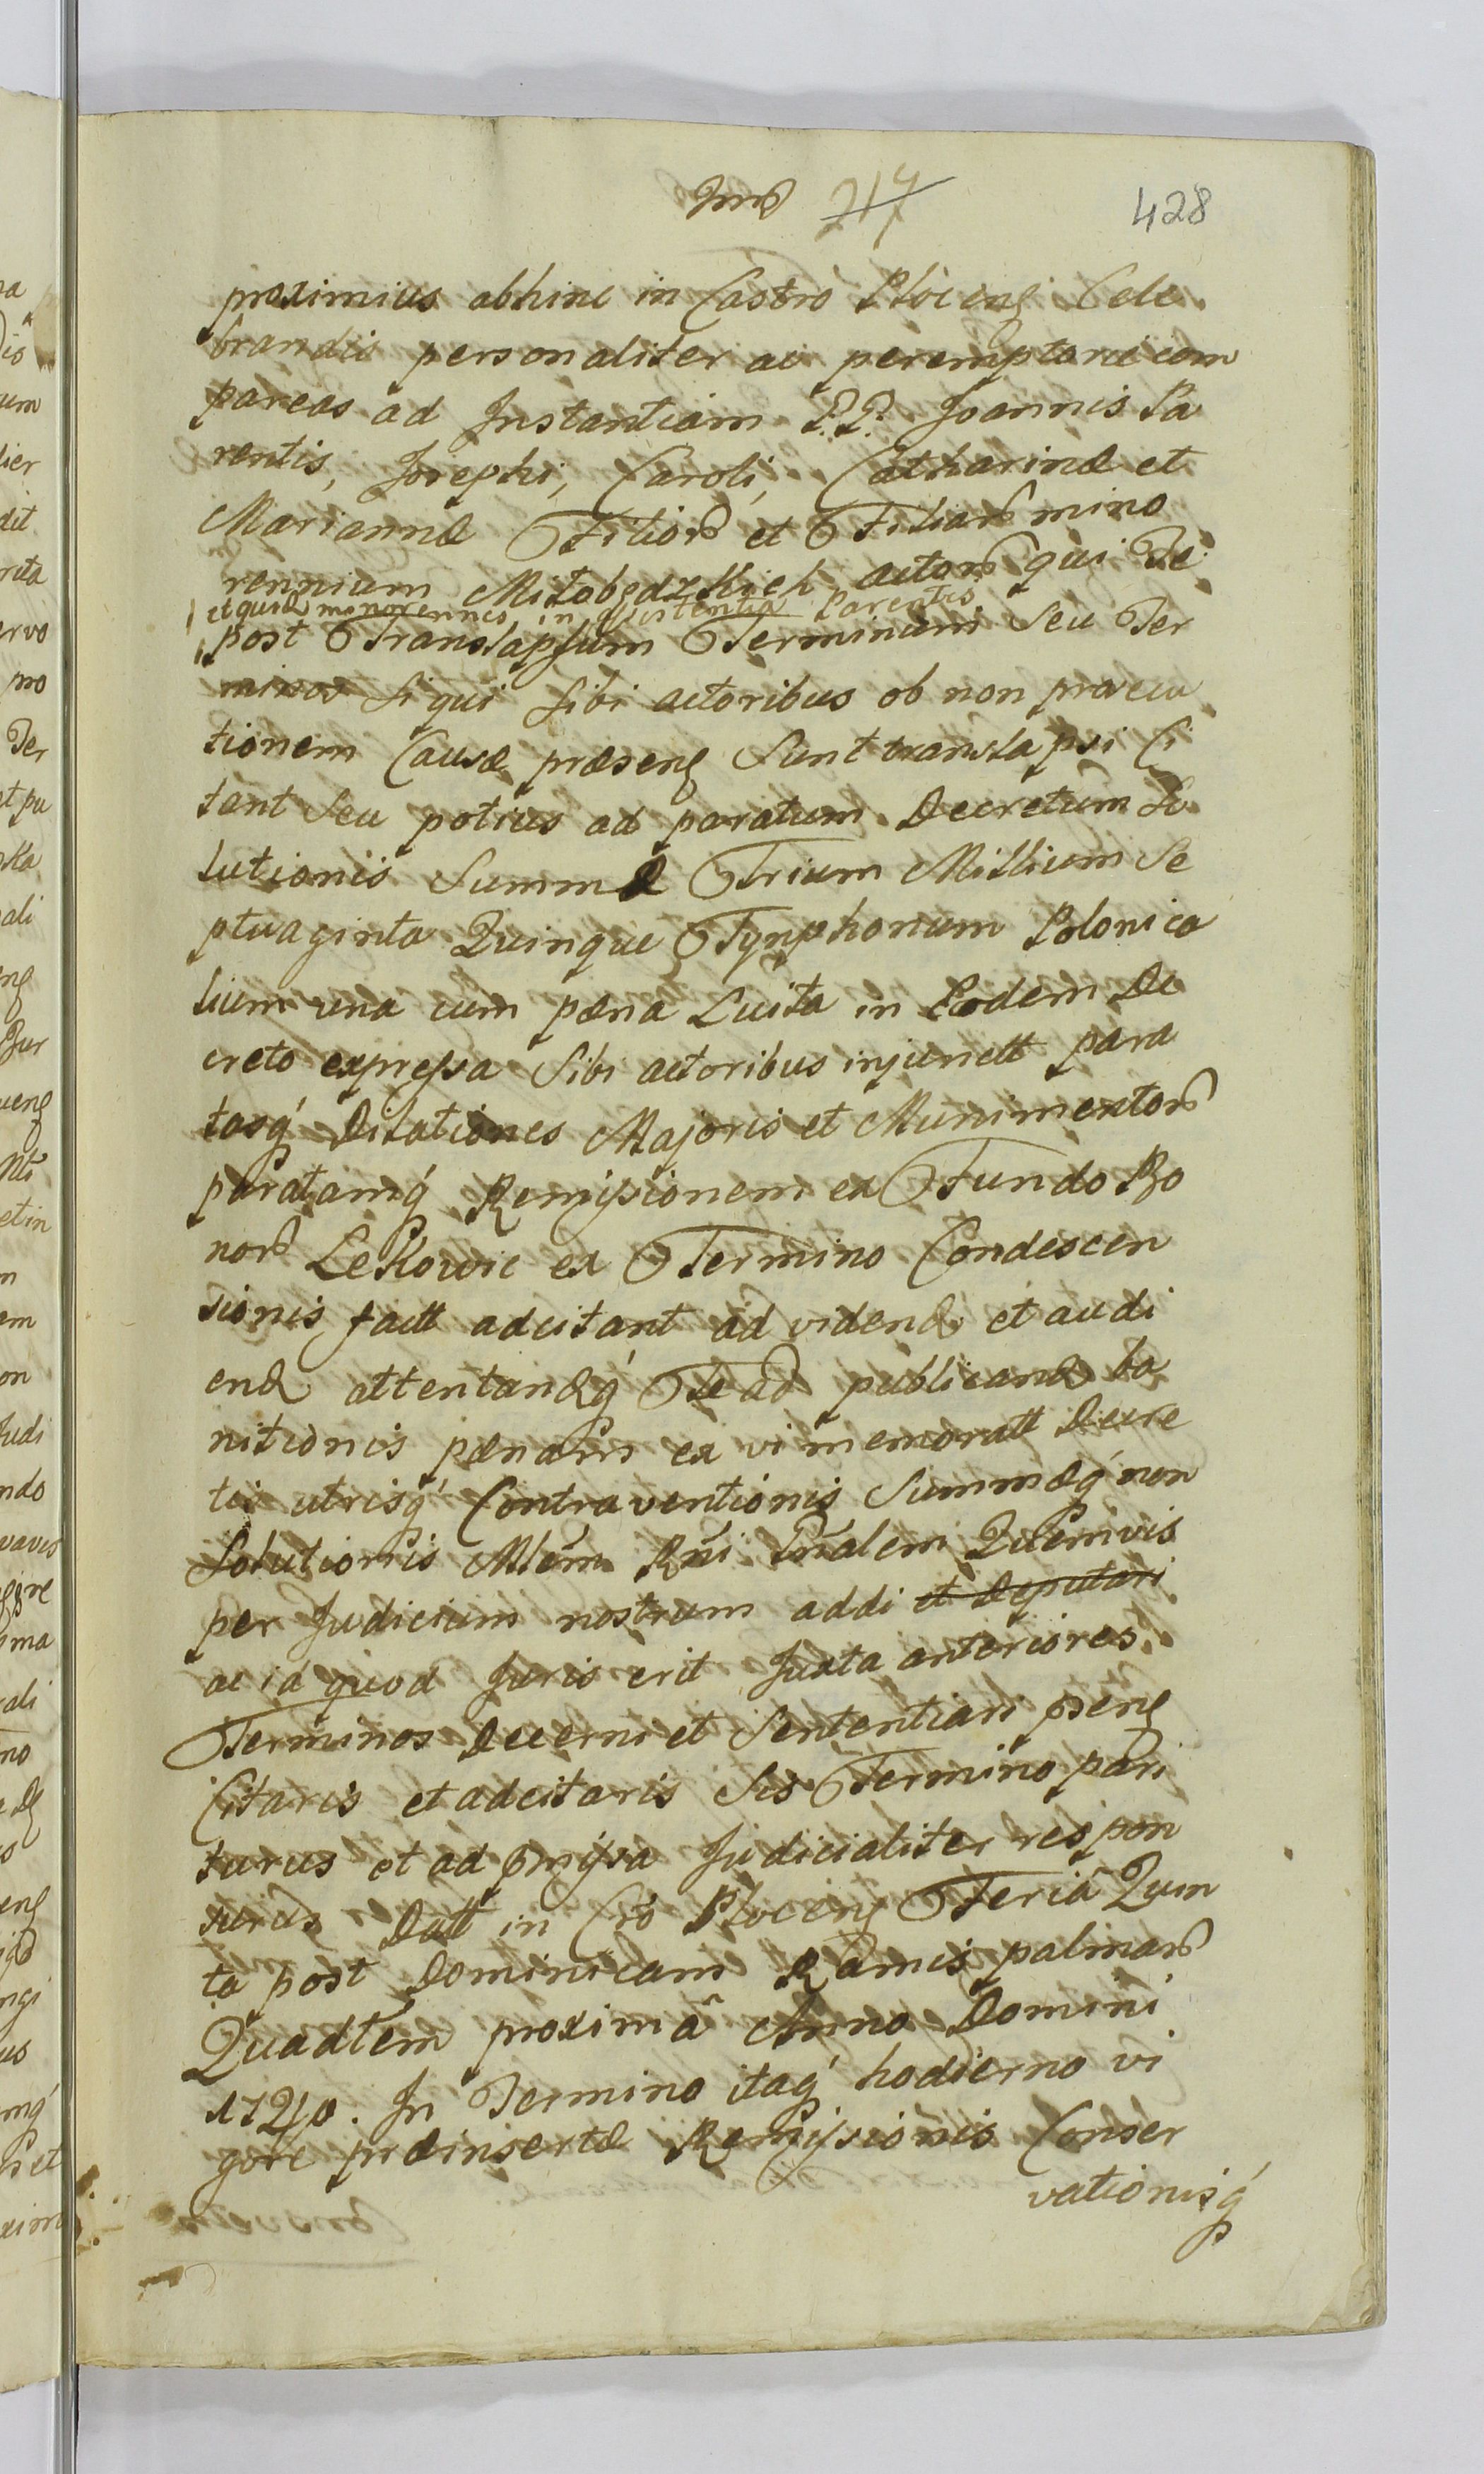 217 428
proximius abhinc in Castro Plocens Cele
brandis personaliter ac peremptorie com
pareas ad Instantiam P.P. Joannis Pa
rentis, Josephi, Caroli, Catharinæ et
Mariannæ Filior et Filiar mino
rennium Miłobędzkich actor qui Te
et quid minorennes in assistentia Parentis
post Translapsum Terminum Seu Ter
minos Si qui Sibi actoribus ob non procu
tionem Causæ præsens Sunt translapsi Ci
tant Seu potius ad paratum Decretum So
lutionis Summæ Trium Millium Se
ptuaginta Quinque Tynphonum Polonica
lium una cum pæna Luita in Eodem De
creto expressa Sibi actoribus injunctt para
tasq Dilationes Majoris et Munimentor
paratamq Remissionem ex Fundo Bo
nor Lekowic ex Termino Condescen
sionis factt adcitant ad vidend et audi
end attentandq Te ad publicand ba
nitionis pænam ex vi memoratt Decre
tis utrisq Contraventionis Summæq non
Solutionis Alem Rni Tnalem Quemvis
per Judicium nostrum addi et Deputari
ac id quod Juris erit Juxta anteriores
Terminos Decerni et Sententiari psens
Citaris et adcitaris Sis Termino pari
turus et ad pmissa Judicialiter respon
surus Datt in Cro Plocens Feria Quin
ta post Dominicam Ramis palmar
Quadtem proximâ Anno Domini
1740. In Termino itaq hodierno vi
gore præinsertæ Remissionis Conser
vationisq